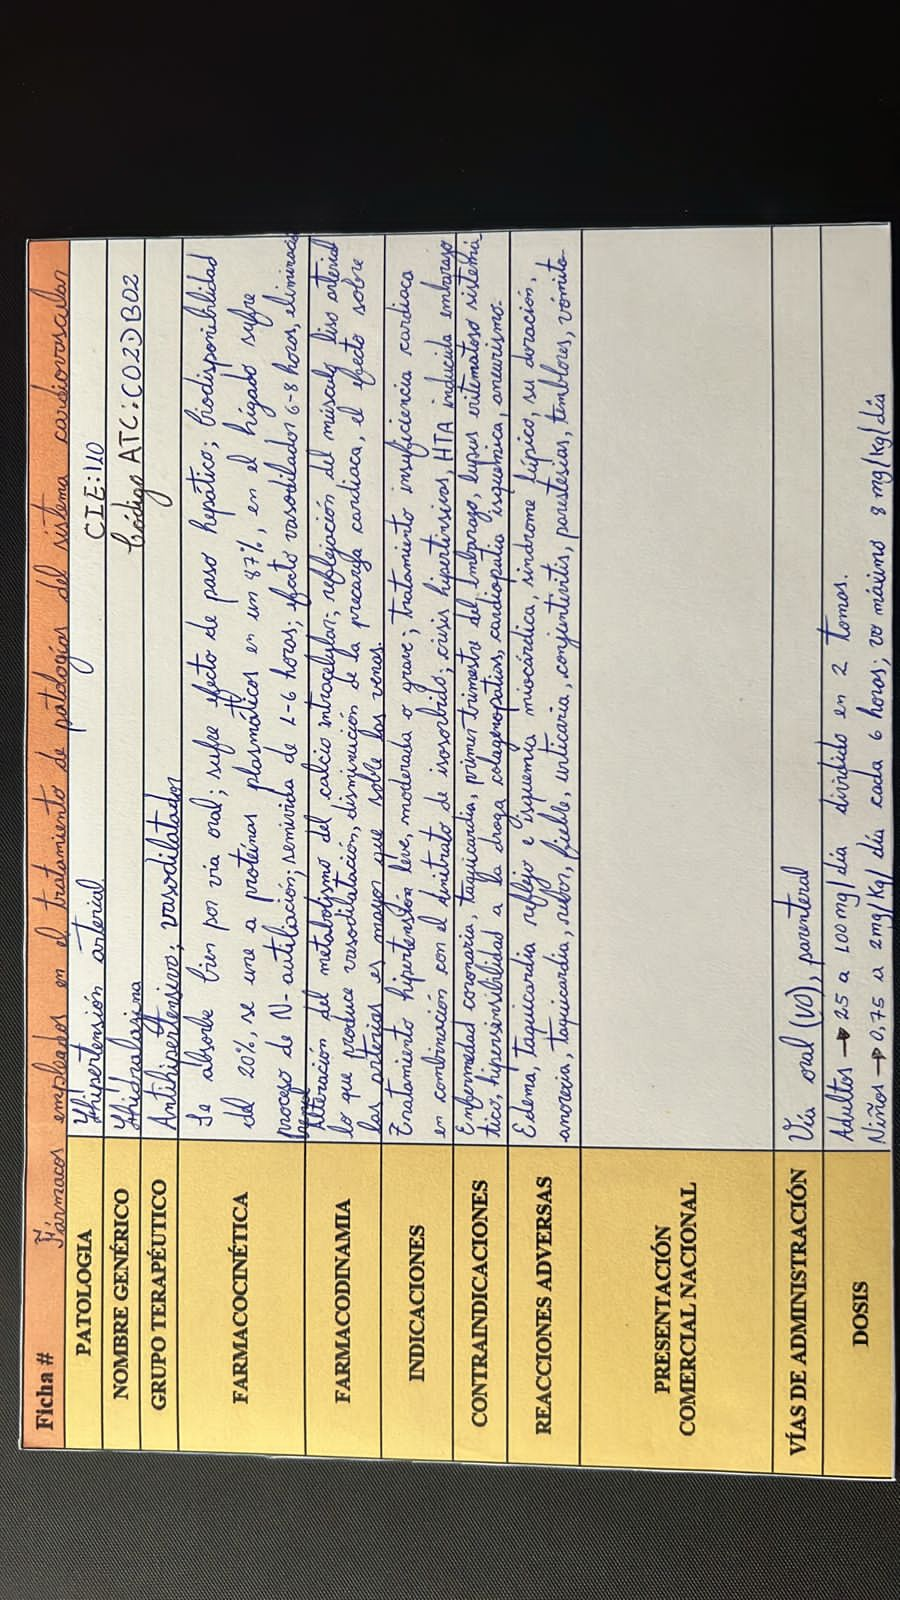 Ficha # Fármacos empleados en el tratamiento de patologías del sistema cardiovascular
PATOLOGIA Hipertensión arterial CIE: I10
NOMBRE GENÉRICO Hidralasina Código ATC: C02DB02
GRUPO TERAPÉUTICO Antihipertensivo; vasodilatador
FARMACOCINÉTICA
Se absorbe bien por via oral; sufre efecto de paso hepático; biodisponibilidad
del 20%, se une a proteínas plasmáticos en un 87%, en el hígado sufre
proceso de N-autilación; semivida de 2-6 horas; efecto vasodilador 6-8 horas, eliminació
renal
FARMACODINAMIA
Alteración del metabolismo del calcio intracelular; relajación del músculo liso arterial
lo que produce vasodilatación, disminución de la precarga cardiaca, el efecto sobre
las arterias es mayor que sobre las venas.
INDICACIONES
Tratamiento hipertensión leve, moderada o grave; tratamiento insuficiencia cardiaca
en combinación con el dinitrato de isosorbido; crisis hipertensivas, HTA inducida embarazo
CONTRAINDICACIONES
Enfermedad coronaria, taquicardia, primer trimestre del embarazo, lupus eritematoso sistemá
tico, hipersensibilidad a la droga colagenopatias, cardiopatia isquemica, aneurismo.
REACCIONES ADVERSAS
Edema, taquicardia reflejo e isquemia miocárdica, síndrome lúpico, su doración,
anorexia, taquicardia, rubor, fiebre, urticaria, conjuntivitis, parestesias, temblores, vómito
PRESENTACIÓN
COMERCIAL NACIONAL
VÍAS DE ADMINISTRACIÓN Via oral (VO), parenteral
DOSIS
Adultos → 25 a 100 mg/día dividido en 2 tomas.
Niños → 0,75 a 2mg/Kg/día cada 6 horas; vo máximo 8 mg/kg/día